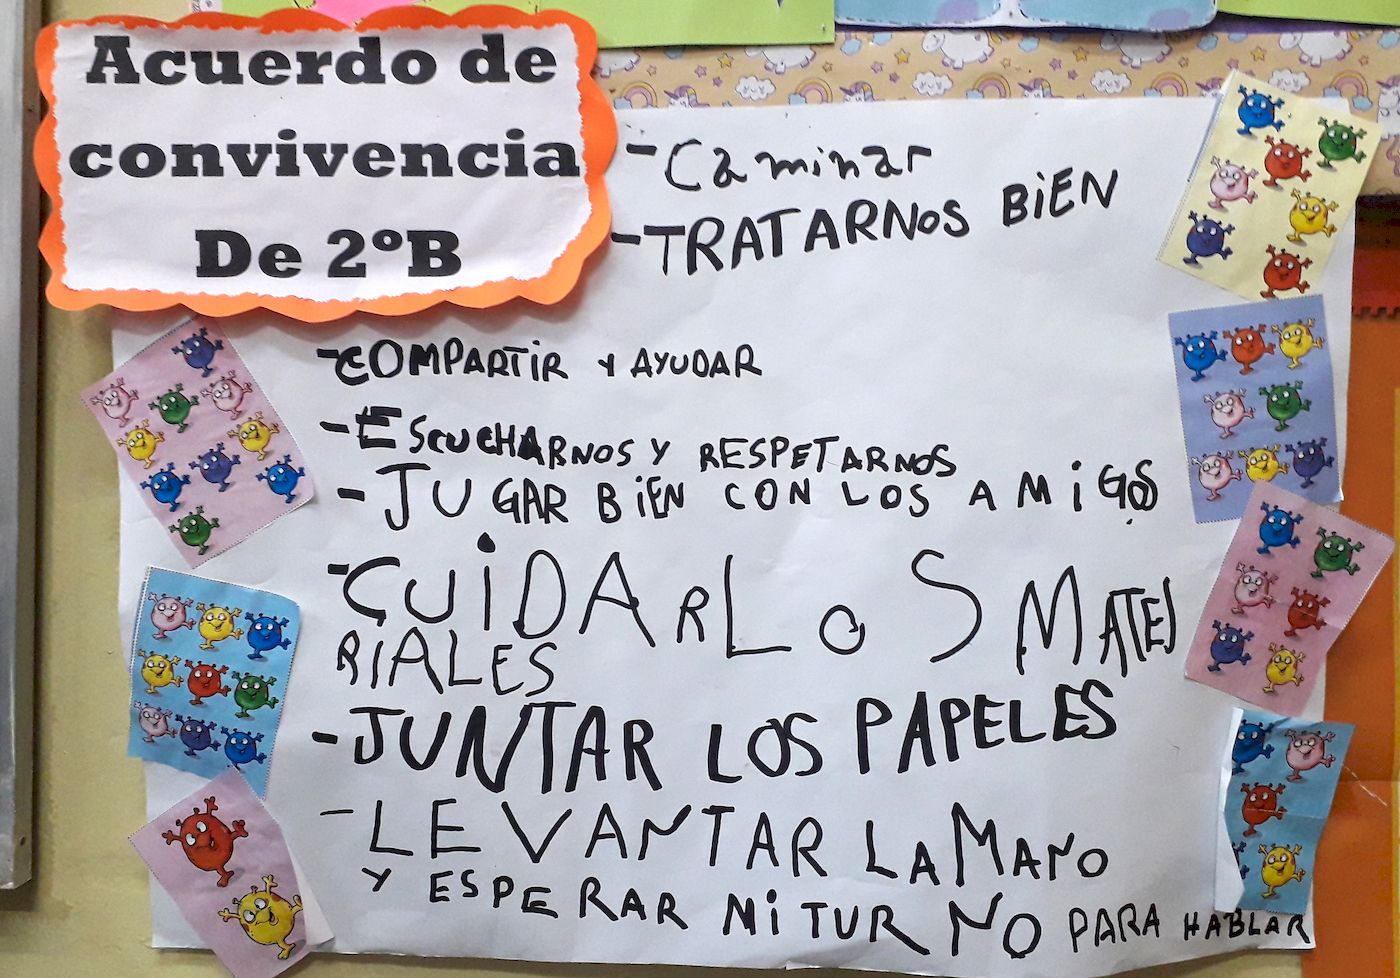 Acuerdo de
convivencia
De 2ºB
- Caminar
- TRATARNOS BiEN
- COMPARTiR Y AYUDAR
- ESCUCHARNOS Y RESPETARNOS
- JUGAR BiEN CON LOS AMiGOS
- CUiDAR LoS MATE
RIALES
- JUNTAR LOS PAPELES
- LEVANTAR LA MANO
Y ESPERAR Mi TURNO PARA HABLAR